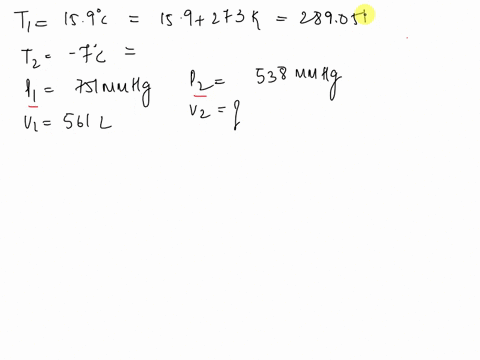 T1 = 15.9°C = 15.9 + 273 K = 289.05
T2 = -7°C =
P1 = 751 mmHg P2 = 538 mmHg
V1 = 561 L V2 = ?